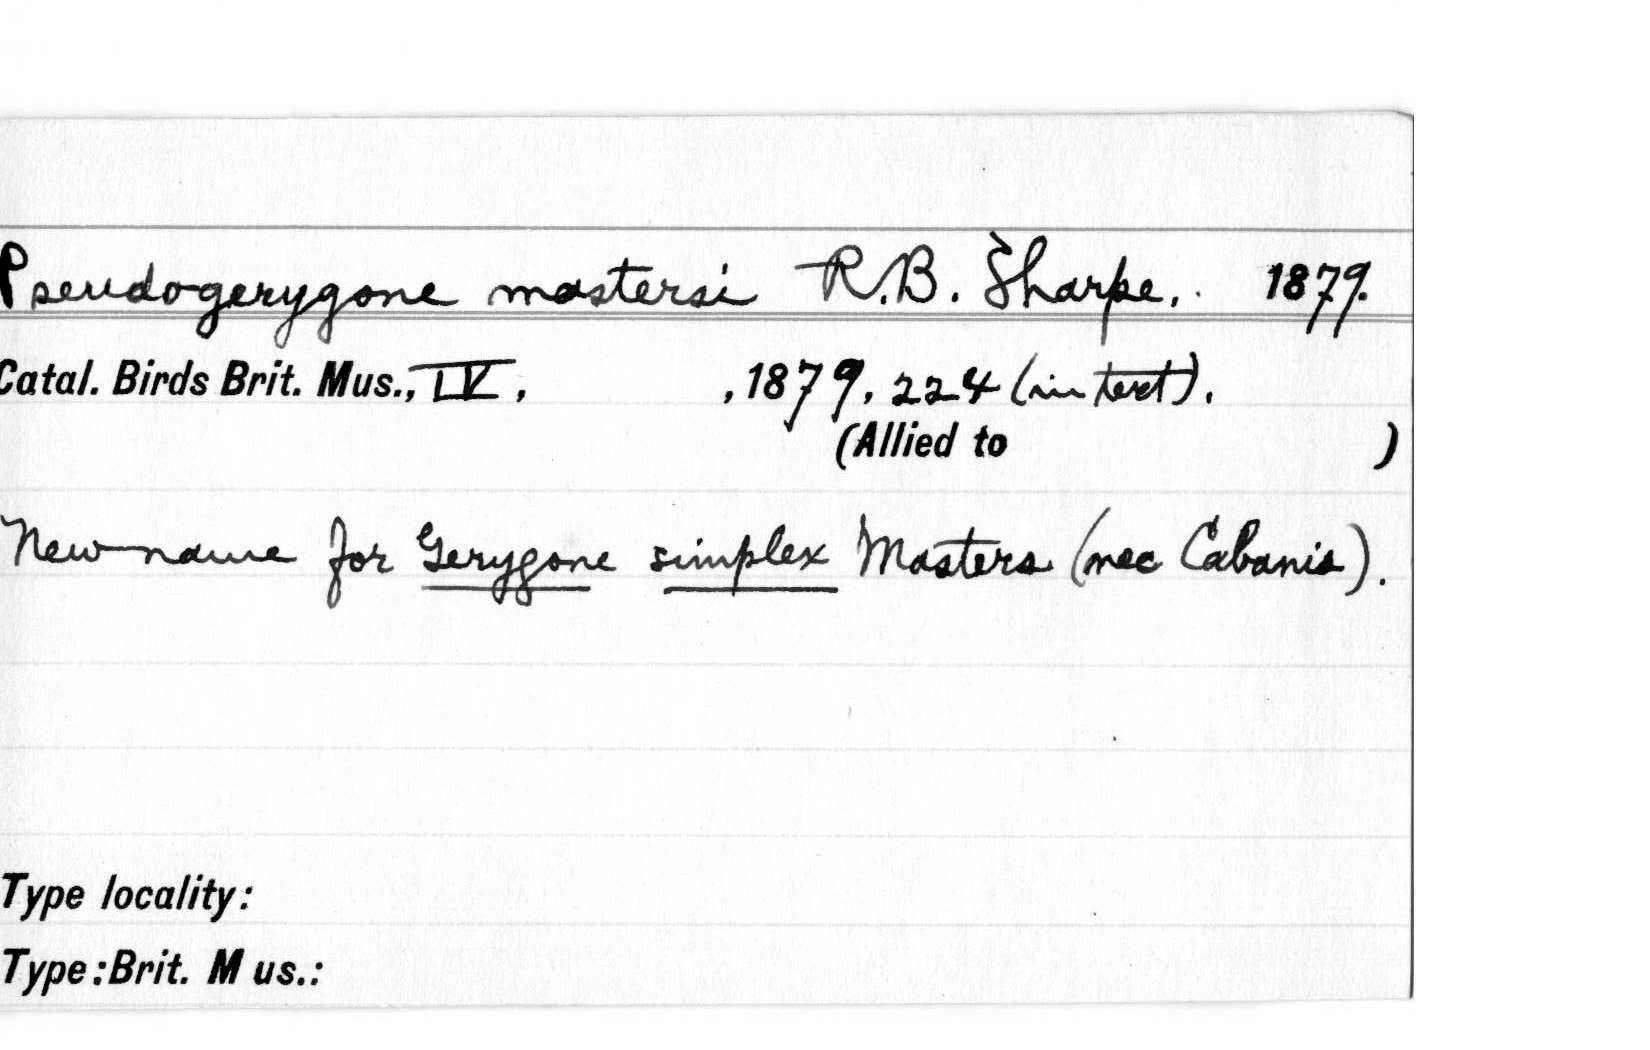 Pseudogerygone mastersi R.B. Sharpe. 1879.
Catal. Birds Brit. Mus., IV, , 1879, 224 (in text).
(Allied to )
New name for Gerygone simplex Masters (nec Cabanis).
Type locality:
Type: Brit. Mus.: